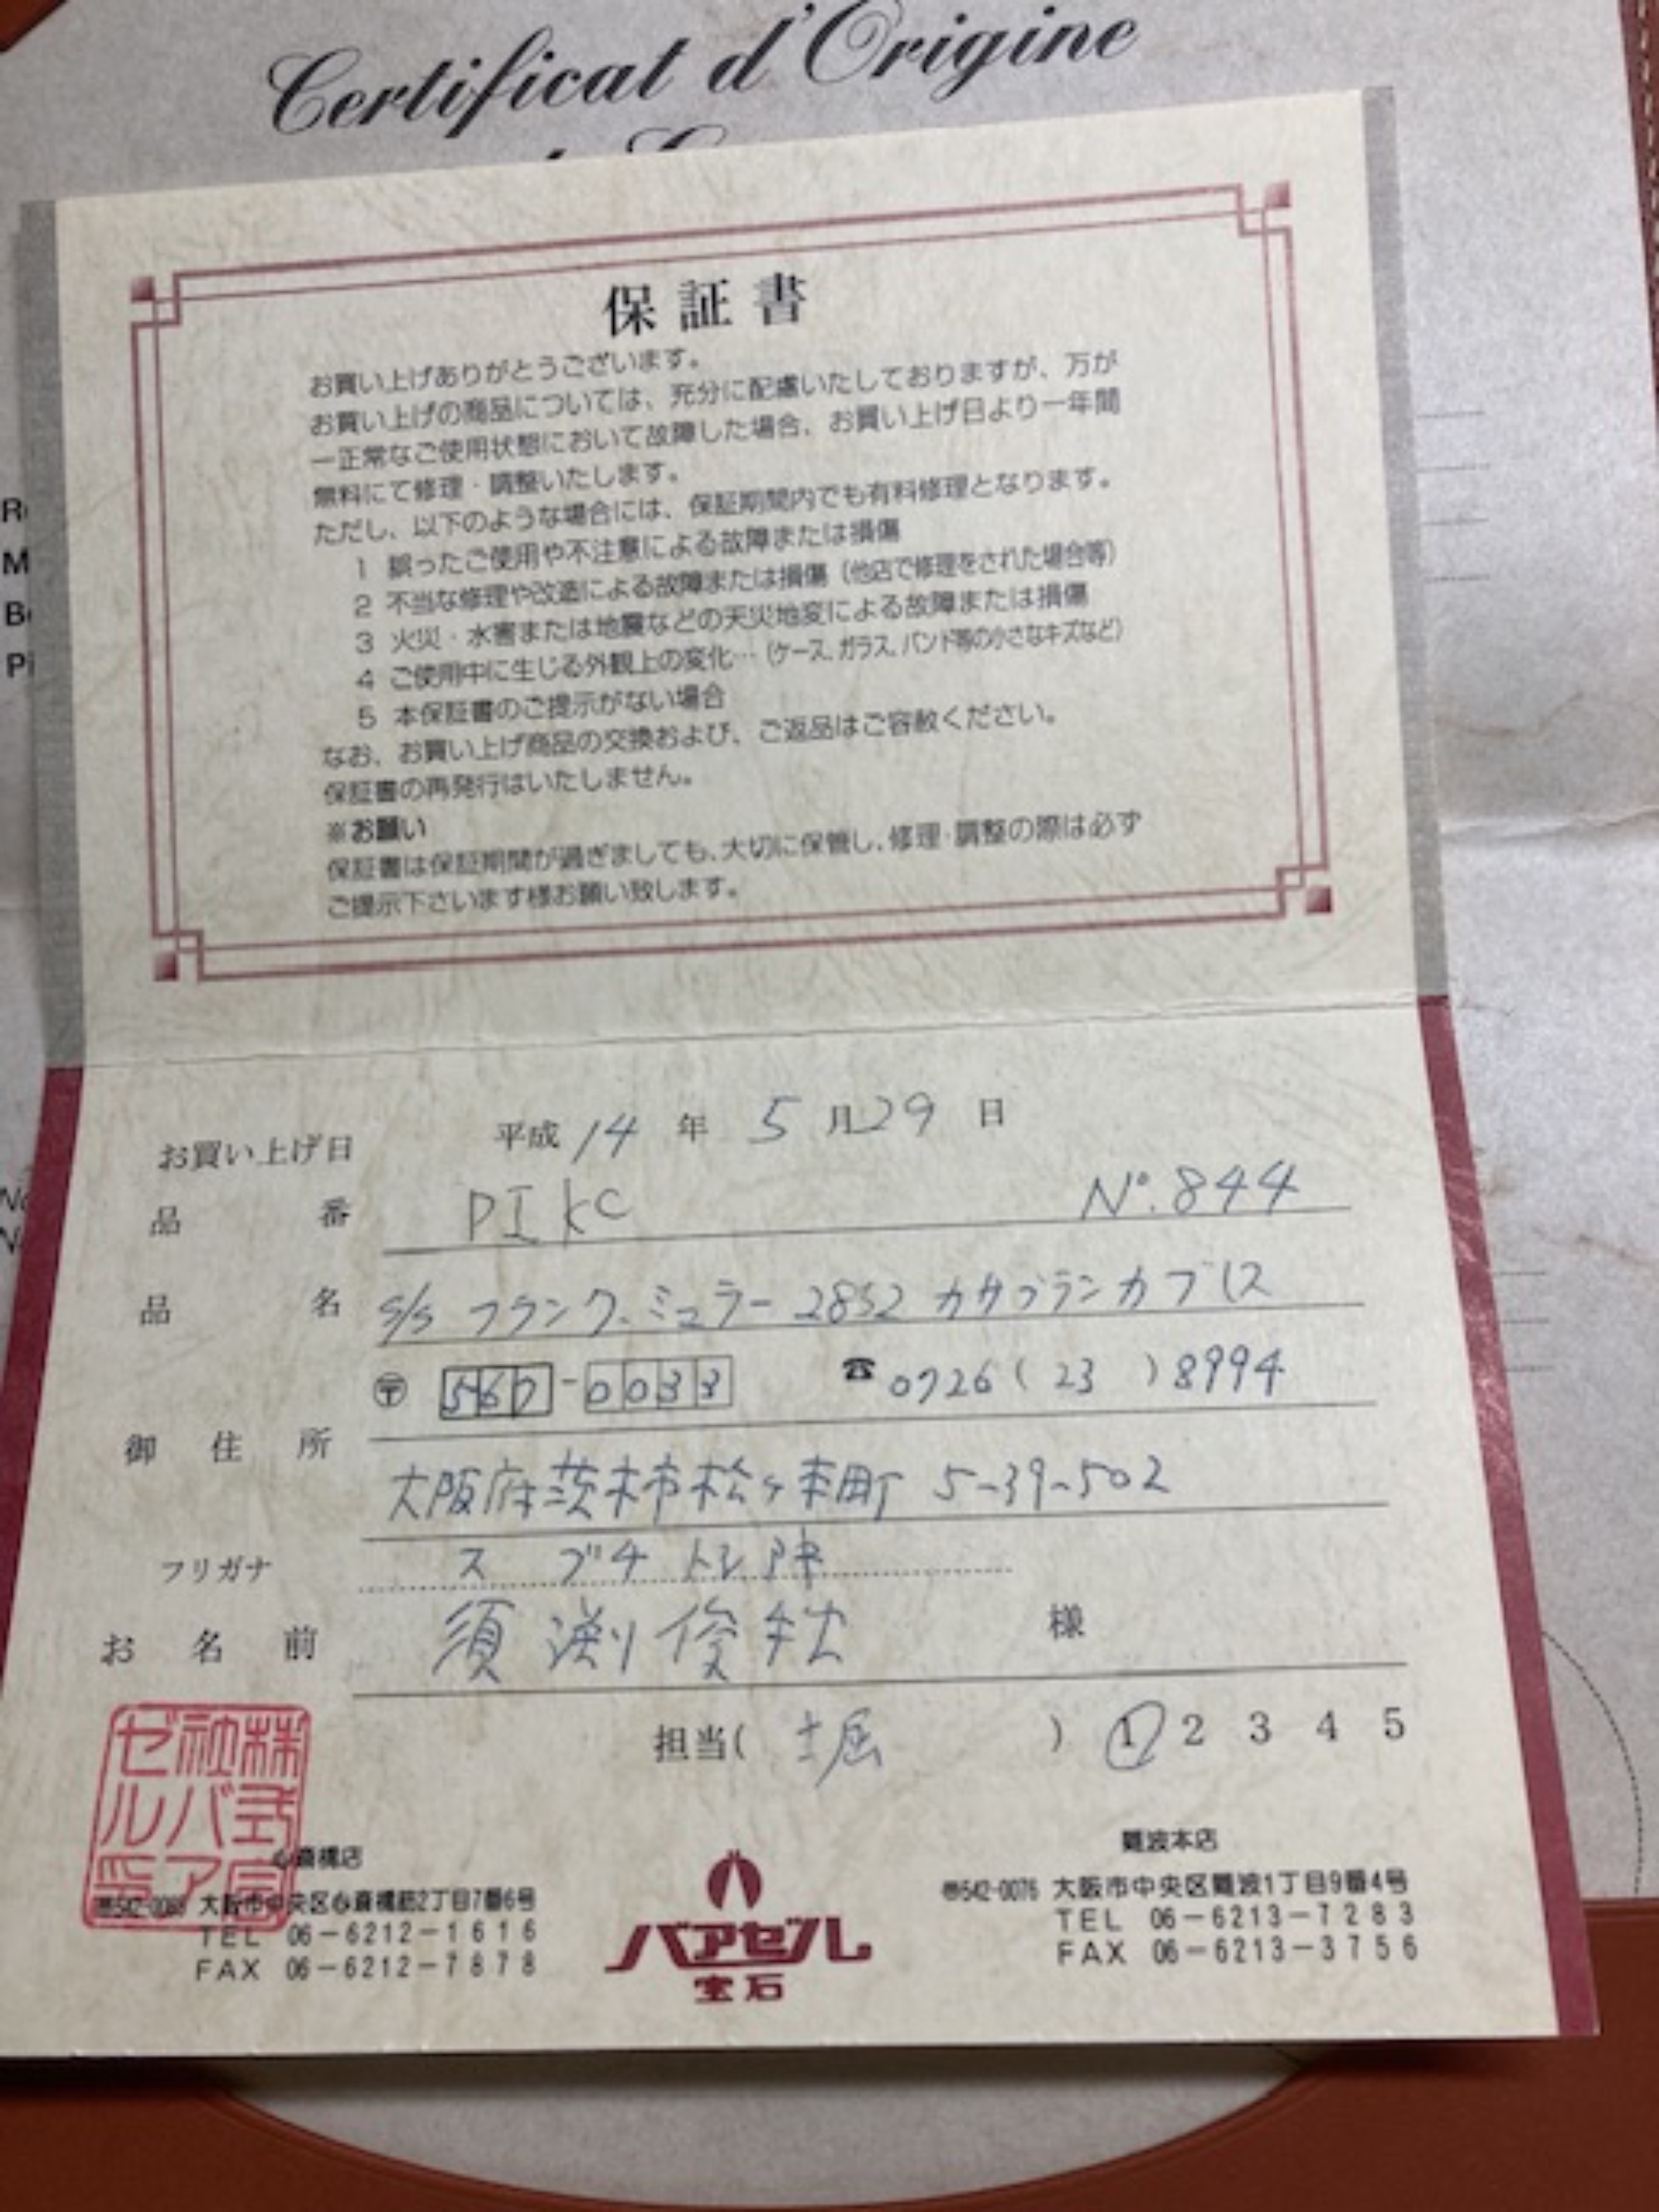 Certificat d'Origine
保証書
お買い上げありがとうございます。
お買い上げの商品については、充分に配慮いたしておりますが、万が
一正常なご使用状態において故障した場合、お買い上げ日より一年間
無料にて修理・調整いたします。
ただし、以下のような場合には、保証期間内でも有料修理となります。
1 誤ったご使用や不注意による故障または損傷
2 不当な修理や改造による故障または損傷（他店で修理をされた場合等）
3 火災・水害または地震などの天災地変による故障または損傷
4 ご使用中に生じる外観上の変化…（ケース、ガラス、バンド等の小さなキズなど）
5 本保証書のご提示がない場合
なお、お買い上げ商品の交換および、ご返品はご容赦ください。
保証書の再発行はいたしません。
※お願い
保証書は保証期間が過ぎましても、大切に保管し、修理・調整の際は必ず
ご提示下さいます様お願い致します。
お買い上げ日 平成14年5月29日
品番 PIKC No.844
品名 S/S フランク.ミュラー 2852 カサブランカブレス
〒 567-0033 ☎0726(23)8994
御住所
大阪府茨木市松ヶ本町 5-39-502
フリガナ スブチトシアキ
お名前 須渕俊秋 様
担当(堀) 1 2 3 4 5
株式会社バアゼル印
心斎橋店
大阪市中央区心斎橋筋2丁目7番6号
TEL 06-6212-1616
FAX 06-6212-7878
バアゼル
宝石
難波本店
〒542-0076 大阪市中央区難波1丁目9番4号
TEL 06-6213-7283
FAX 06-6213-3756